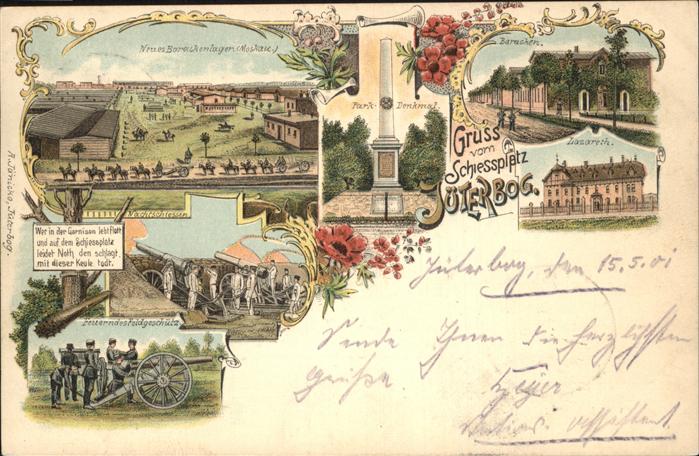 Neues Barackenlager (Moskau.)
Park-Denkmal.
Baracken.
Lazareth.
Gruss
vom
Schiessplatz
JÜTERBOG.
A. Jänicke, Jüterbog.
Nachtschiessen
Wer in der Garnison lebt flott
und auf dem Schiessplatz
leidet Noth, den schlagt
mit dieser Keule todt.
Feuerndes Feldgeschütz
Jüterbog, den 15.5.01
Sende Ihnen die herzlichsten
Grüße.